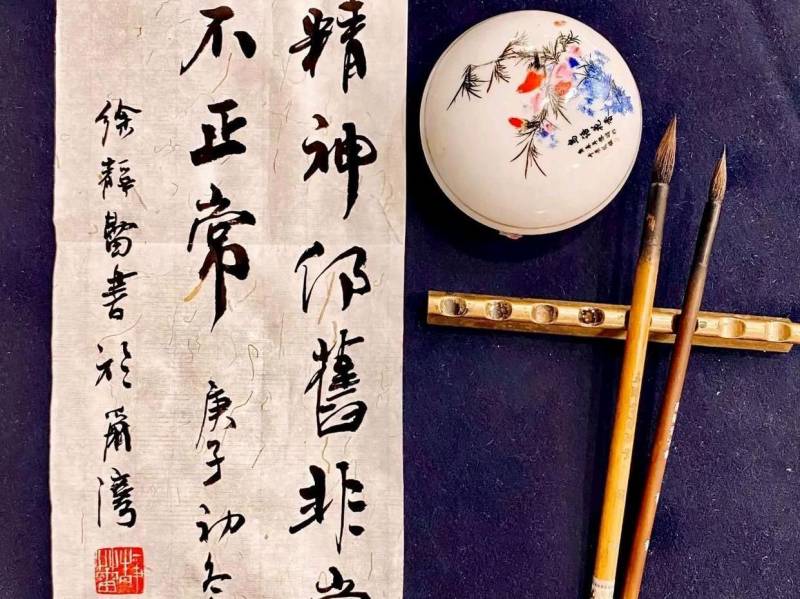 精神仍舊非常
不正常 庚子初冬
徐靜蕾書於爾灣